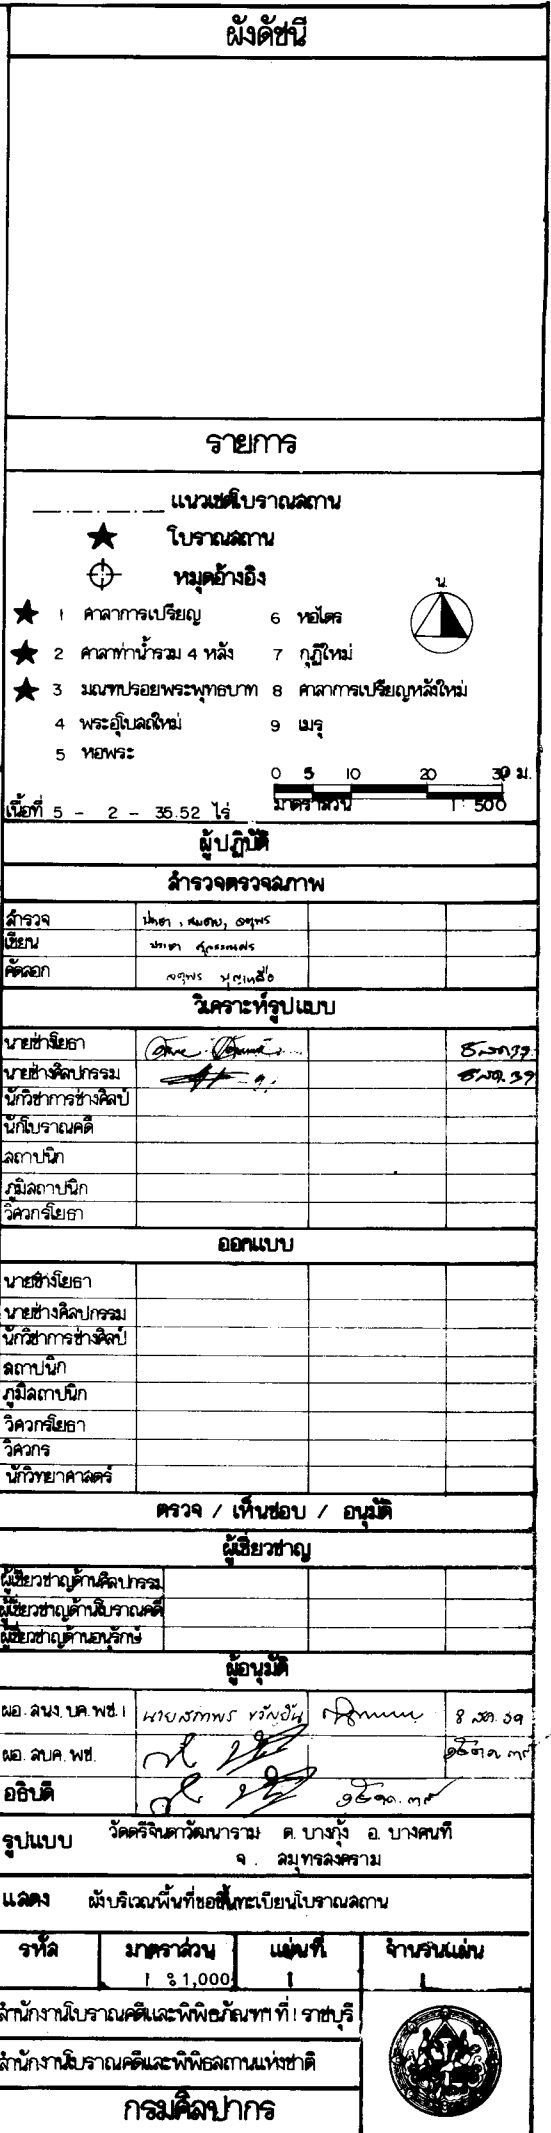 ผังดัชนี
รายการ
แนวเขตโบราณสถาน
โบราณสถาน
หมุดอ้างอิง
น.
1 ศาลาการเปรียญ
2 ศาลาท่าน้ำรวม 4 หลัง
3 มณฑปรอยพระพุทธบาท
4 พระอุโบสถใหม่
5 หอพระ
6 หอไตร
7 กุฏิใหม่
8 ศาลาการเปรียญหลังใหม่
9 เมรุ
0 5 10 20 30 ม.
มาตราส่วน 1 : 500
เนื้อที่ 5 - 2 - 35.52 ไร่
ผู้ปฏิบัติ
สำรวจตรวจสภาพ
สำรวจ
เขียน
คัดลอก
วิเคราะห์รูปแบบ
นายช่างโยธา 8 สค 39
นายช่างศิลปกรรม 8 สค. 39
นักวิชาการช่างศิลป์
นักโบราณคดี
สถาปนิก
ภูมิสถาปนิก
วิศวกรโยธา
ออกแบบ
นายช่างโยธา
นายช่างศิลปกรรม
นักวิชาการช่างศิลป์
สถาปนิก
ภูมิสถาปนิก
วิศวกรโยธา
วิศวกร
นักวิทยาศาสตร์
ตรวจ / เห็นชอบ / อนุมัติ
ผู้เชี่ยวชาญ
ผู้เชี่ยวชาญด้านศิลปกรรม
ผู้เชี่ยวชาญด้านโบราณคดี
ผู้เชี่ยวชาญด้านอนุรักษ์
ผู้อนุมัติ
ผอ. สนง. บค. พช. 1 8 สค. 39
ผอ. สบค. พช.
อธิบดี
รูปแบบ วัดตรีจินดาวัฒนาราม ต. บางกุ้ง อ. บางคนที
จ. สมุทรสงคราม
แสดง ผังบริเวณพื้นที่ขอขึ้นทะเบียนโบราณสถาน
รหัส มาตราส่วน แผ่นที่ จำนวนแผ่น
1 : 1,000 1 1
สำนักงานโบราณคดีและพิพิธภัณฑฯ ที่ 1 ราชบุรี
สำนักงานโบราณคดีและพิพิธสถานแห่งชาติ
กรมศิลปากร